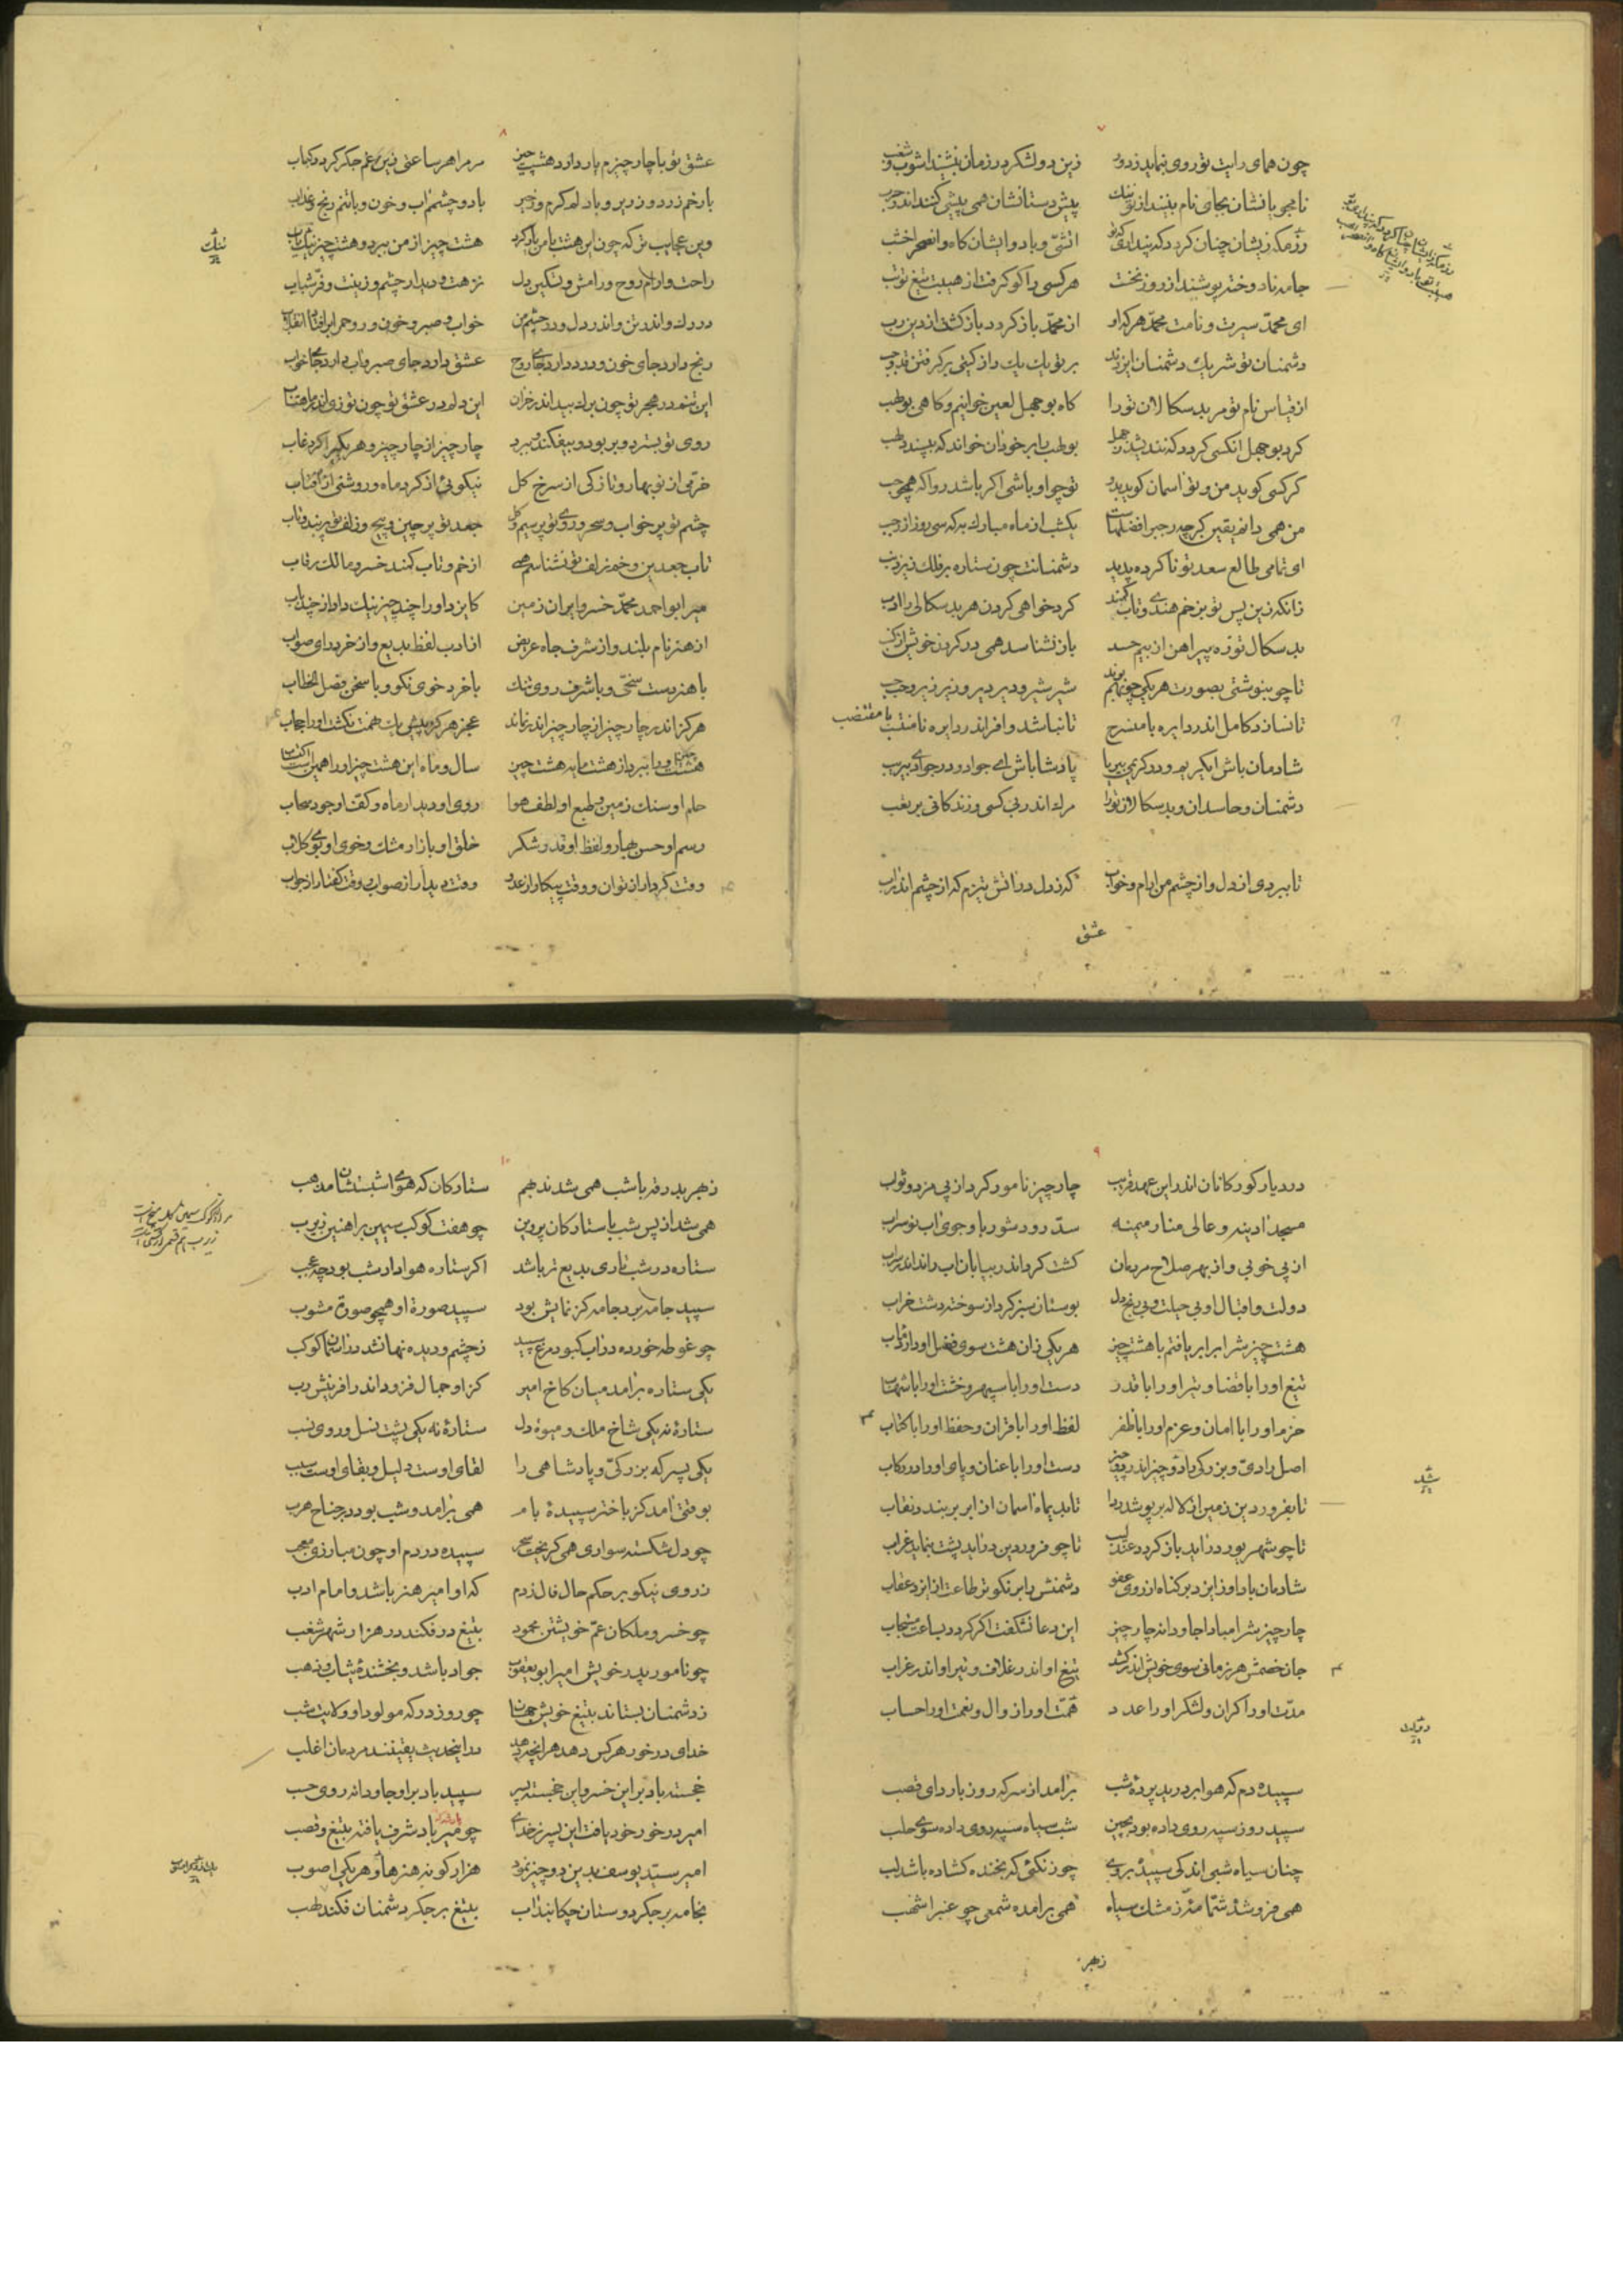 ۷
چون همای رایت تو روی بنماید ز دور زین دو لشکر در زمان بنشیند آشوب و شغب
نامجوی یافشان بجای نام بینند از تو ننگ پیش دستانشان همی پیشی کنند اندر حرب
رزمگه زیشان چنان گردد که پنداری که تو آتشی و باد و ایشان کاه و
جامه نادوخته پوشند از روز نخست هر کسی را کو گرفت از هیبت تیغ تو تب
ای محمد سیرت و نامت محمد هر که او از محمد بازگردد بازگشت از دین رب
دشمنان تو شریک دشمنان ایزدند بر تو یک یک را از گیتی برگرفتن
از قیاس نام تو مر بدسگالان تورا گاه بوجهل لعین خوانیم و گاهی بولهب
کرد بوجهل آنکسی گردد که بولهب را بر خود آن خواند که بپسندد لهب
گر کسی گوید من و تو آسمان گوید بدو تو چو او باشی اگر باشد روا که همچو حب
من همی دانم یقین گرچه رجب را فضلهاست یکشب از ماه مبارک به که سی روز از رجب
ای تمامی طالع سعد تو ناکرده پدید دشمنانت چون ستاره بر فلک زیر ذنب
زانکه زین پس تو بزخم هندی و تاب کمند کرد خواهی گردن هر بدسگالی را ادب
بدسگال تو زه پیراهن از بیم حسد باز نشناسد همی در گردن خویش از کنب
تا چو بنوشتی بصورت هر یکی چون هم بوند شیر شیر و دیر دیر و زیر زیر و حب حب
تا نسازد کامل اندر دایره با منسرح تا نباشد وافر اندر دایره با مقتضب
شادمان باش ای کریم و در کریمی بی ریا پادشا باش ای جواد و در جوادی بی ریب
دشمنان و حاسدان و بدسگالان تورا مرگ اندر بی کسی و زندگانی بر تعب
تا ببردی از دل و از چشم من آرام و خواب گه ز دل در آتش تیزم گه از چشم اندر آب
عشق
۸
عشق تو با چار چیزم یار دارد هشت چیز مر مرا هر ساعتی زین غم جگر گردد کباب
با رخم زرد و زریر و با دلم گرم و زحیر با دو چشمم آب و خون و با تنم رنج و عذاب
وین عجایب تر که چون این هشت با من یار کرد هشت چیز از من ببرد و هشت چیز نیک ناب
راحت و آرام روح و رامش و تسکین دل نزهت و دیدار چشم و زینت و فر شباب
در رک و اندر تن و اندر دل و در چشم من خواب و صبر و خون و روحم را
رنج دارد جای خون و درد دارد جای روح عشق دارد جای صبر و آب دارد جای خواب
این تنم در هجر تو چون برگ بید اندر خزان این دلم در عشق تو چون توزی اندر ماهتاب
روی تو بسترد و بربود و بیفکند و ببرد چار چیز از چار چیز و هر یکی را کرد غاب
خرمی از نوبهار و تازگی از سرخ گل نیکویی از گرد ماه و روشنی از آفتاب
چشم تو پر خواب و سحر و روی تو پر سیم و گل جعد تو پر چین و پیچ و زلف تو پر بند و تاب
تاب جعد بن و خم زلف تو نشناسم همی از خم و تاب کمند خسرو مالک رقاب
میر ابو احمد محمد خسرو ایران زمین کایزد او را چند چیز نیک داد از چند باب
از هنر نام بلند و از شرف جاه عریض از ادب لفظ بدیع و از خرد رای صواب
با هنر دست سخی و با شرف روی نیک با خرد خوی نکو و با سخن فصل الخطاب
هرگز اندر چار چیز از چار چیز اندر نماند عجز هرگز پیش یک همت نگشت او را حجاب
سال و ماه این هشت چیز او را همین است اکتساب
حلم او سنگ زمین و طبع او لطف هوا روی او دیدار ماه و کف او جود سحاب
رسم او حسن بهار و لفظ او قدر شکر خلق او بازار مشک و خوی او بوی گلاب
وقت کردار از توان و وقت پیکار از عدو وقت دیدار از صواب و وقت گفتار از جواب
ننک
۹
در دیار کورکانان اندر این عهد قریب چار چیز نامور کرد از پی مزد و ثواب
مسجد آدینه و عالی منار میمنه سد رود شور با و جوی آب نوسراب
از پی خوبی و از بهر صلاح مردمان کشت کرد اندر بیابان آب راند اندر سراب
دولت و اقبال او بی حیلت و بی رنج دل بوستان سبز کرد از سوخته دشت خراب
هشت چیزش را برابر یافتم با هشت چیز هر یکی زان هشت سوی فضل او دارد مآب
تیغ او را با قضا و تیر او را با قدر دست او را با سپهر و خشت او را با شهاب
حزم او را با امان و عزم او را با ظفر لفظ او را با قران و حفظ او را با کتاب
اصل رادی و بزرگی باد و چیز اندر دو چیز دست او را با عنان و پای او را در رکاب
تا بفروردین زمین از لاله بر پوشد ردا تا بدیماه آسمان از ابر بر بندد نقاب
تا چو شهریور در آید باز گردد عندلیب تا چو فروردین در آید پشت بنماید غراب
شادمان باد او ز ایزد بر گناه از روی عفو دشمنش را بر نکوتر طاعت از ایزد عقاب
چار چیزش را مبادا جاودانه چار چیز این دعا نشگفت اگر گردد بساعت مستجاب
جان خصمش هر زمانی سوی خویش اندر کشد تیغ او اندر غلاف و تیر او اندر غراب
مدت او را کران و لشکر او را عدد همت او را زوال و نعمت او را حساب
سپیده دم که هوا بر درید پرده شب برآمد از سر که روز با ردای قصب
سپید روز سپید روی داده بود بچین شب سیاه سیه روی داده سوی حلب
چنان سیاه شبی اندکی سپید بروی چو زنگیی که بخنده گشاده باشد لب
همی فروشد شمامه ز مشک سیاه همی برآمده شمعی چو عنبر اشهب
زهر
شد
۱۰
زهر بدرقه با شب همی شدند بهم ستارگان که همی داشت شبستان مذهب
همی شد از پس شب با ستارگان پروین چو هفت کوکب سیمین بر آهنین زبزب
ستاره در شب تاری بدیع تر باشد اگر ستاره هوادار شب بود چه عجب
سپید جامه بد جامه کز نمایش بود سپید صورت او همچو صورت مشوب
چو غوطه خورده در آب کبود مرغ سپید ز چشم و دیده نهان شد در آسمان کوکب
یکی ستاره برآمد میان کاخ امیر کز او جمال فزود اندر آفرینش رب
ستاره نه یکی شاخ ملک و میوه دل ستاره نه یکی پشت نسل و روی نسب
یکی پسر که بزرگی و پادشاهی را لقای اوست دلیل و بقای اوست سبب
بوقتی آمد کز باختر سپیده بام همی برآمد و شب بود در جناح هرب
چو دل شکسته سواری همی گریخت سحر سپیده در دم او چون مبارزی معجب
ز روی نیکو بر حکم حال فال زدم که او امیر هنر باشد و امام ادب
چو خسرو ملکان عم خویشتن محمود بتیغ در فکند در هزار شهر شغب
چو نامور پدر خویش امیر ابو یعقوب جواد باشد و بخشنده ثیاب و ذهب
ز دشمنان بستاند بتیغ خویش جهان چو روز در که مولود او ولایت شب
خدای در خور هر کس دهد هر آنچه دهد در اینحدیث یقینند مردمان اغلب
خجسته باد بر این خسرو این خجسته پسر سپید باد بر او جاودانه روی حسب
امیر در خور خود یافت این پسر ز خدای چو میر باد شرف یافته بتیغ و قصب
امیر سید یوسف بدین دو چیز نمود هزار گونه هنرها و هر یکی اصوب
بخامه بر جگر دوستان چکاند آب بتیغ بر جگر دشمنان فکند لهب